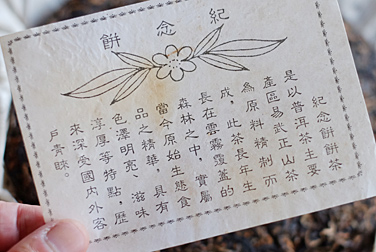 紀念餅
紀念餅餅茶
是以普洱茶主要
產區易武正山茶
為原料精制而
成，此茶長年生
長在雲霧覆蓋的
森林之中，實屬
當今原始生態食
品之精華，具有
色澤明亮、滋味
淳厚等特點，歷
來深受國內外客
戶青睞。